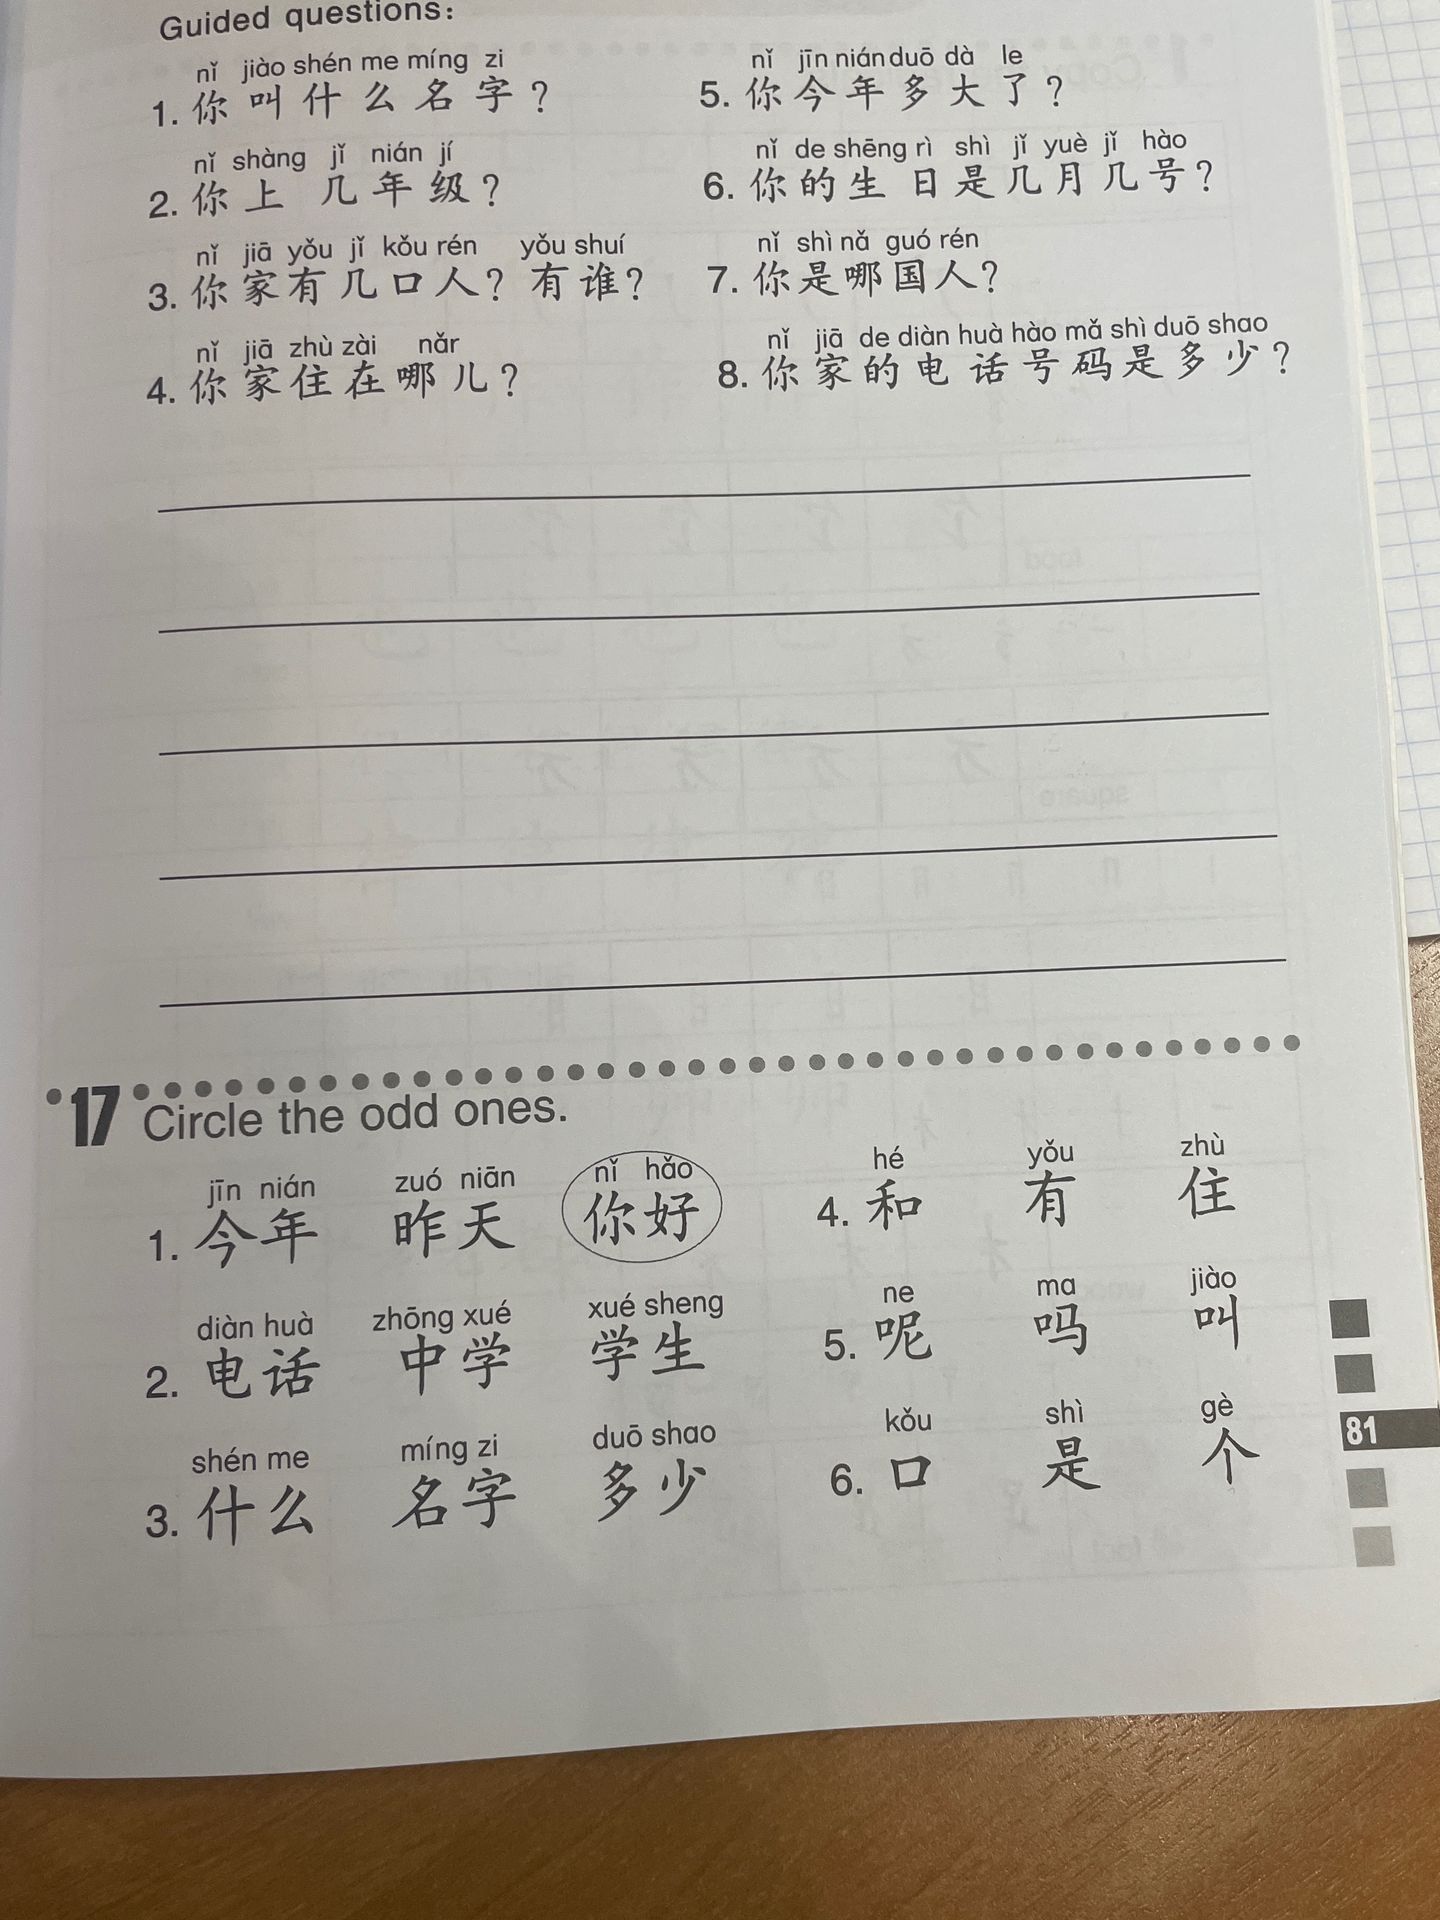 Guided questions:
nǐ jiào shén me míng zi
1. 你叫什么名字？
nǐ shàng jǐ nián jí
2. 你上几年级？
nǐ jiā yǒu jǐ kǒu rén yǒu shuí
3. 你家有几口人？有谁？
nǐ jiā zhù zài nǎr
4. 你家住在哪儿？
nǐ jīn nián duō dà le
5. 你今年多大了？
nǐ de shēng rì shì jǐ yuè jǐ hào
6. 你的生日是几月几号？
nǐ shì nǎ guó rén
7. 你是哪国人？
nǐ jiā de diàn huà hào mǎ shì duō shao
8. 你家的电话号码是多少？
17 Circle the odd ones.
jīn nián zuó niān nǐ hǎo
1. 今年 昨天 你好
diàn huà zhōng xué xué sheng
2. 电话 中学 学生
shén me míng zi duō shao
3. 什么 名字 多少
hé yǒu zhù
4. 和 有 住
ne ma jiào
5. 呢 吗 叫
kǒu shì gè
6. 口 是 个
81